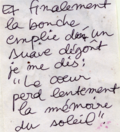 Et finalement
la bouche
emplie d'un
suave dégoût
je me dis:
"Le cœur
perd lentement
la mémoire
du soleil"